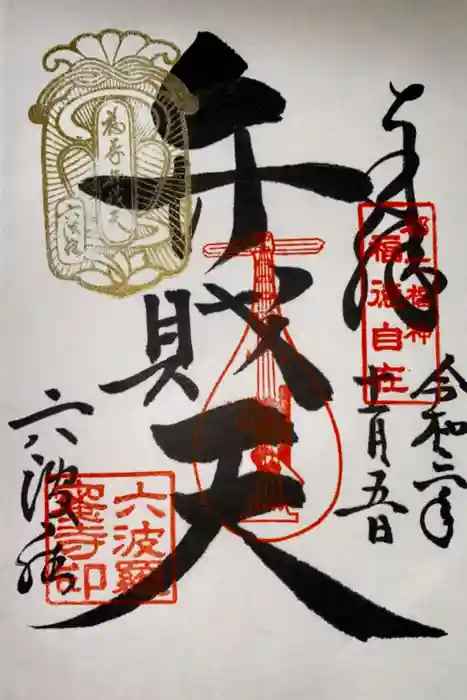 奉拝
都七福神
福徳自在
令和二年
十一月五日
弁財天
六波羅
六波羅
蜜寺印